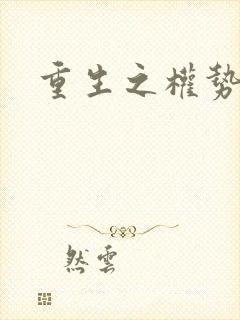 重生之權勢
然雲